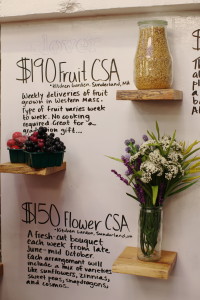 $190 Fruit CSA
*Kitchen Garden, Sunderland, MA
Weekly deliveries of fruit
grown in Western Mass.
Type of fruit varies week
to week. No cooking
required. Great for a
graduation gift...
$150 Flower CSA
*Kitchen Garden, Sunderland, MA
A fresh-cut bouquet
each week from late
June-mid October.
Each arrangement will
include a mix of varieties
like sunflowers, zinnias,
sweet peas, snapdragons,
and cosmos.
$